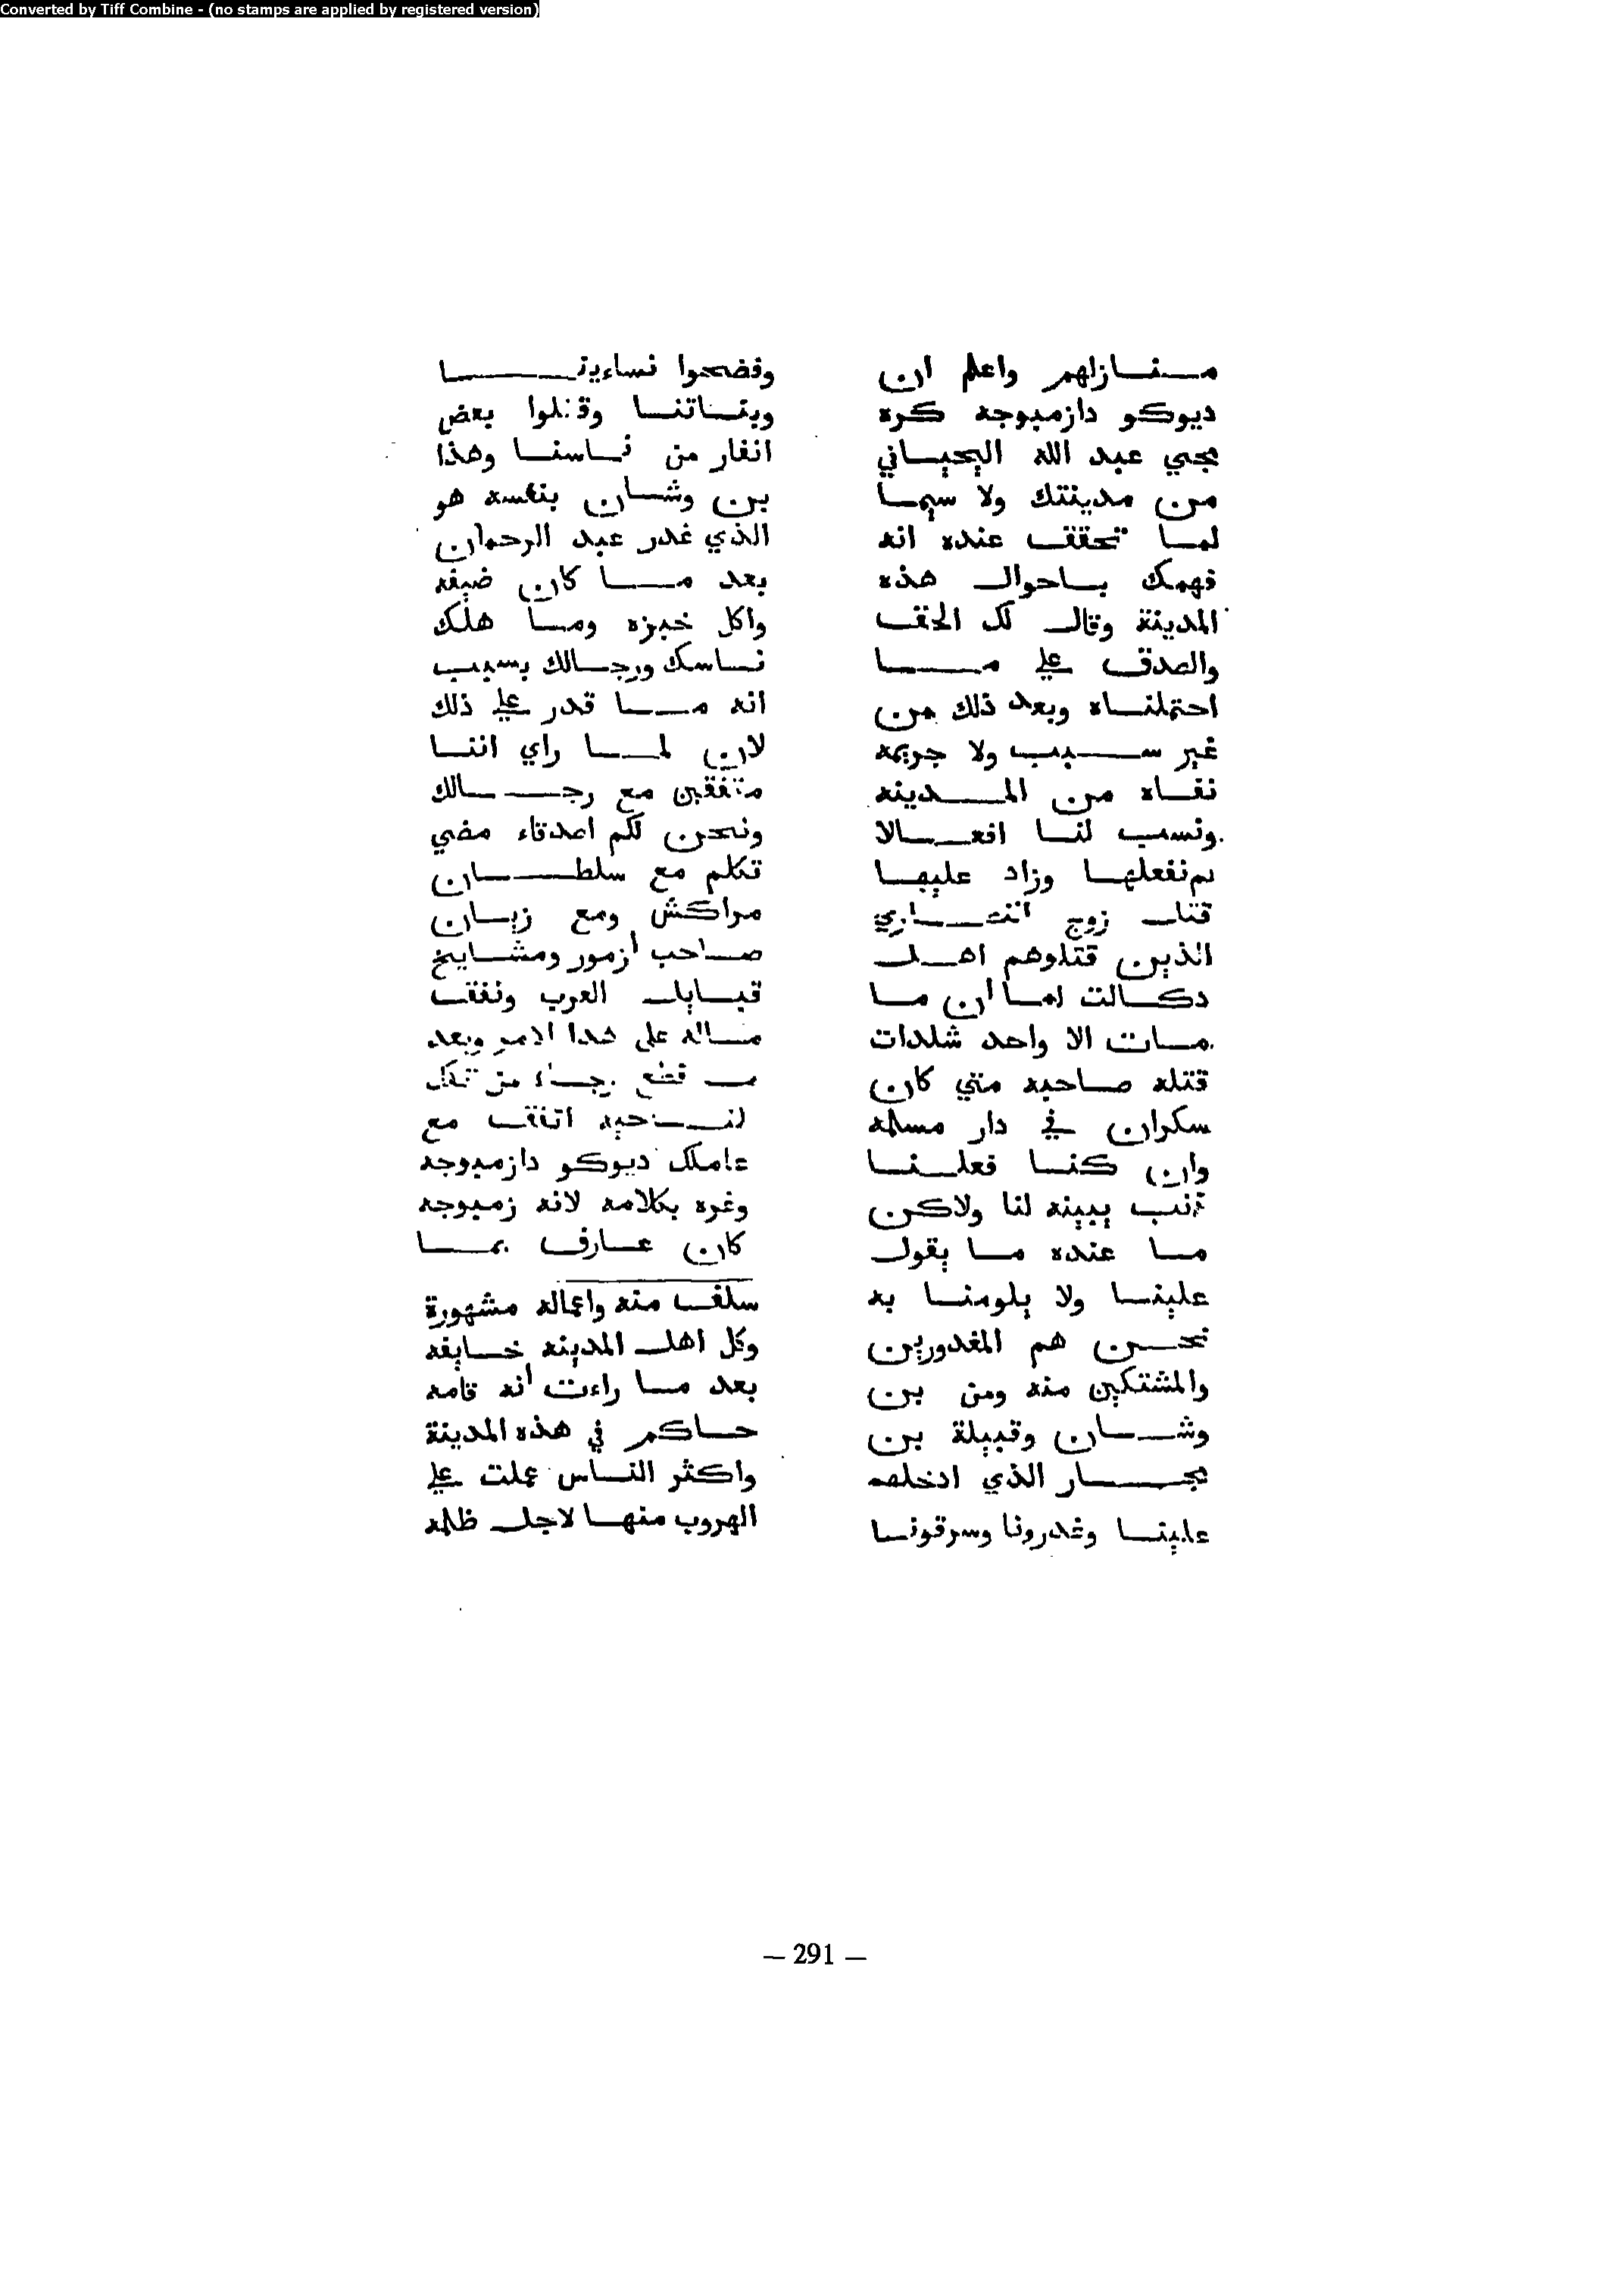 Converted by Tiff Combine - (no stamps are applied by registered version)
منازلهم واعلم ان
ديوكو دازمبوجه كره
مجي عبد الله اليحياني
من مدينتك ولا سيما
لما تحقق عنده انه
فهمك باحوال هذه
المدينة وقال لك الحق
والصدق علي ما
احتملناه وبعد ذلك من
غير سبب ولا جريمه
نفاه من المدينه
ونسب لنا افعالا
لم نفعلها وزاد عليها
قتل زوج
الذين قتلوهم اهل
دكالت اما ان ما
مات الا واحد شلدات
قتله صاحبه متي كان
سكران في دار مسلمه
وان كنا فعلنا
ذنب يبينه لنا ولاكن
ما عنده ما يقول
علينا ولا يلومنا به
نحن هم المغدورين
والمشتكين منه ومن بن
وشان وقبيلة بن
الذي ادخلهم
علينا وغدرونا وسرقونا
وفضحوا نساءينا
وبناتنا وقتلوا بعض
انفار من ناسنا وهذا
بن وشان بنفسه هو
الذي غدر عبد الرحمان
بعد ما كان ضيفه
واكل خبزه وما هلك
ناسك ورجالك بسبب
انه ما قدر علي ذلك
لان لما راي اننا
متفقين مع رجالك
ونحن لكم اصدقاء مضي
تكلم مع سلطان
مراكش ومع زيان
صاحب أزمور ومشايخ
قبايل العرب ونفق
ماله على هذا الامر وبعد
ما قطع من تلك
الناحيه اتفق مع
عاملك ديوكو دازمبوجه
وغره بكلامه لانه زمبوجه
كان عارف بما
سلف منه واعماله مشهورة
وكل اهل المدينه خايفه
بعد ما راءت أنه قامه
حاكم في هذه المدينة
واكثر الناس عملت علي
الهروب منها لاجل ظلمه
— 291 —